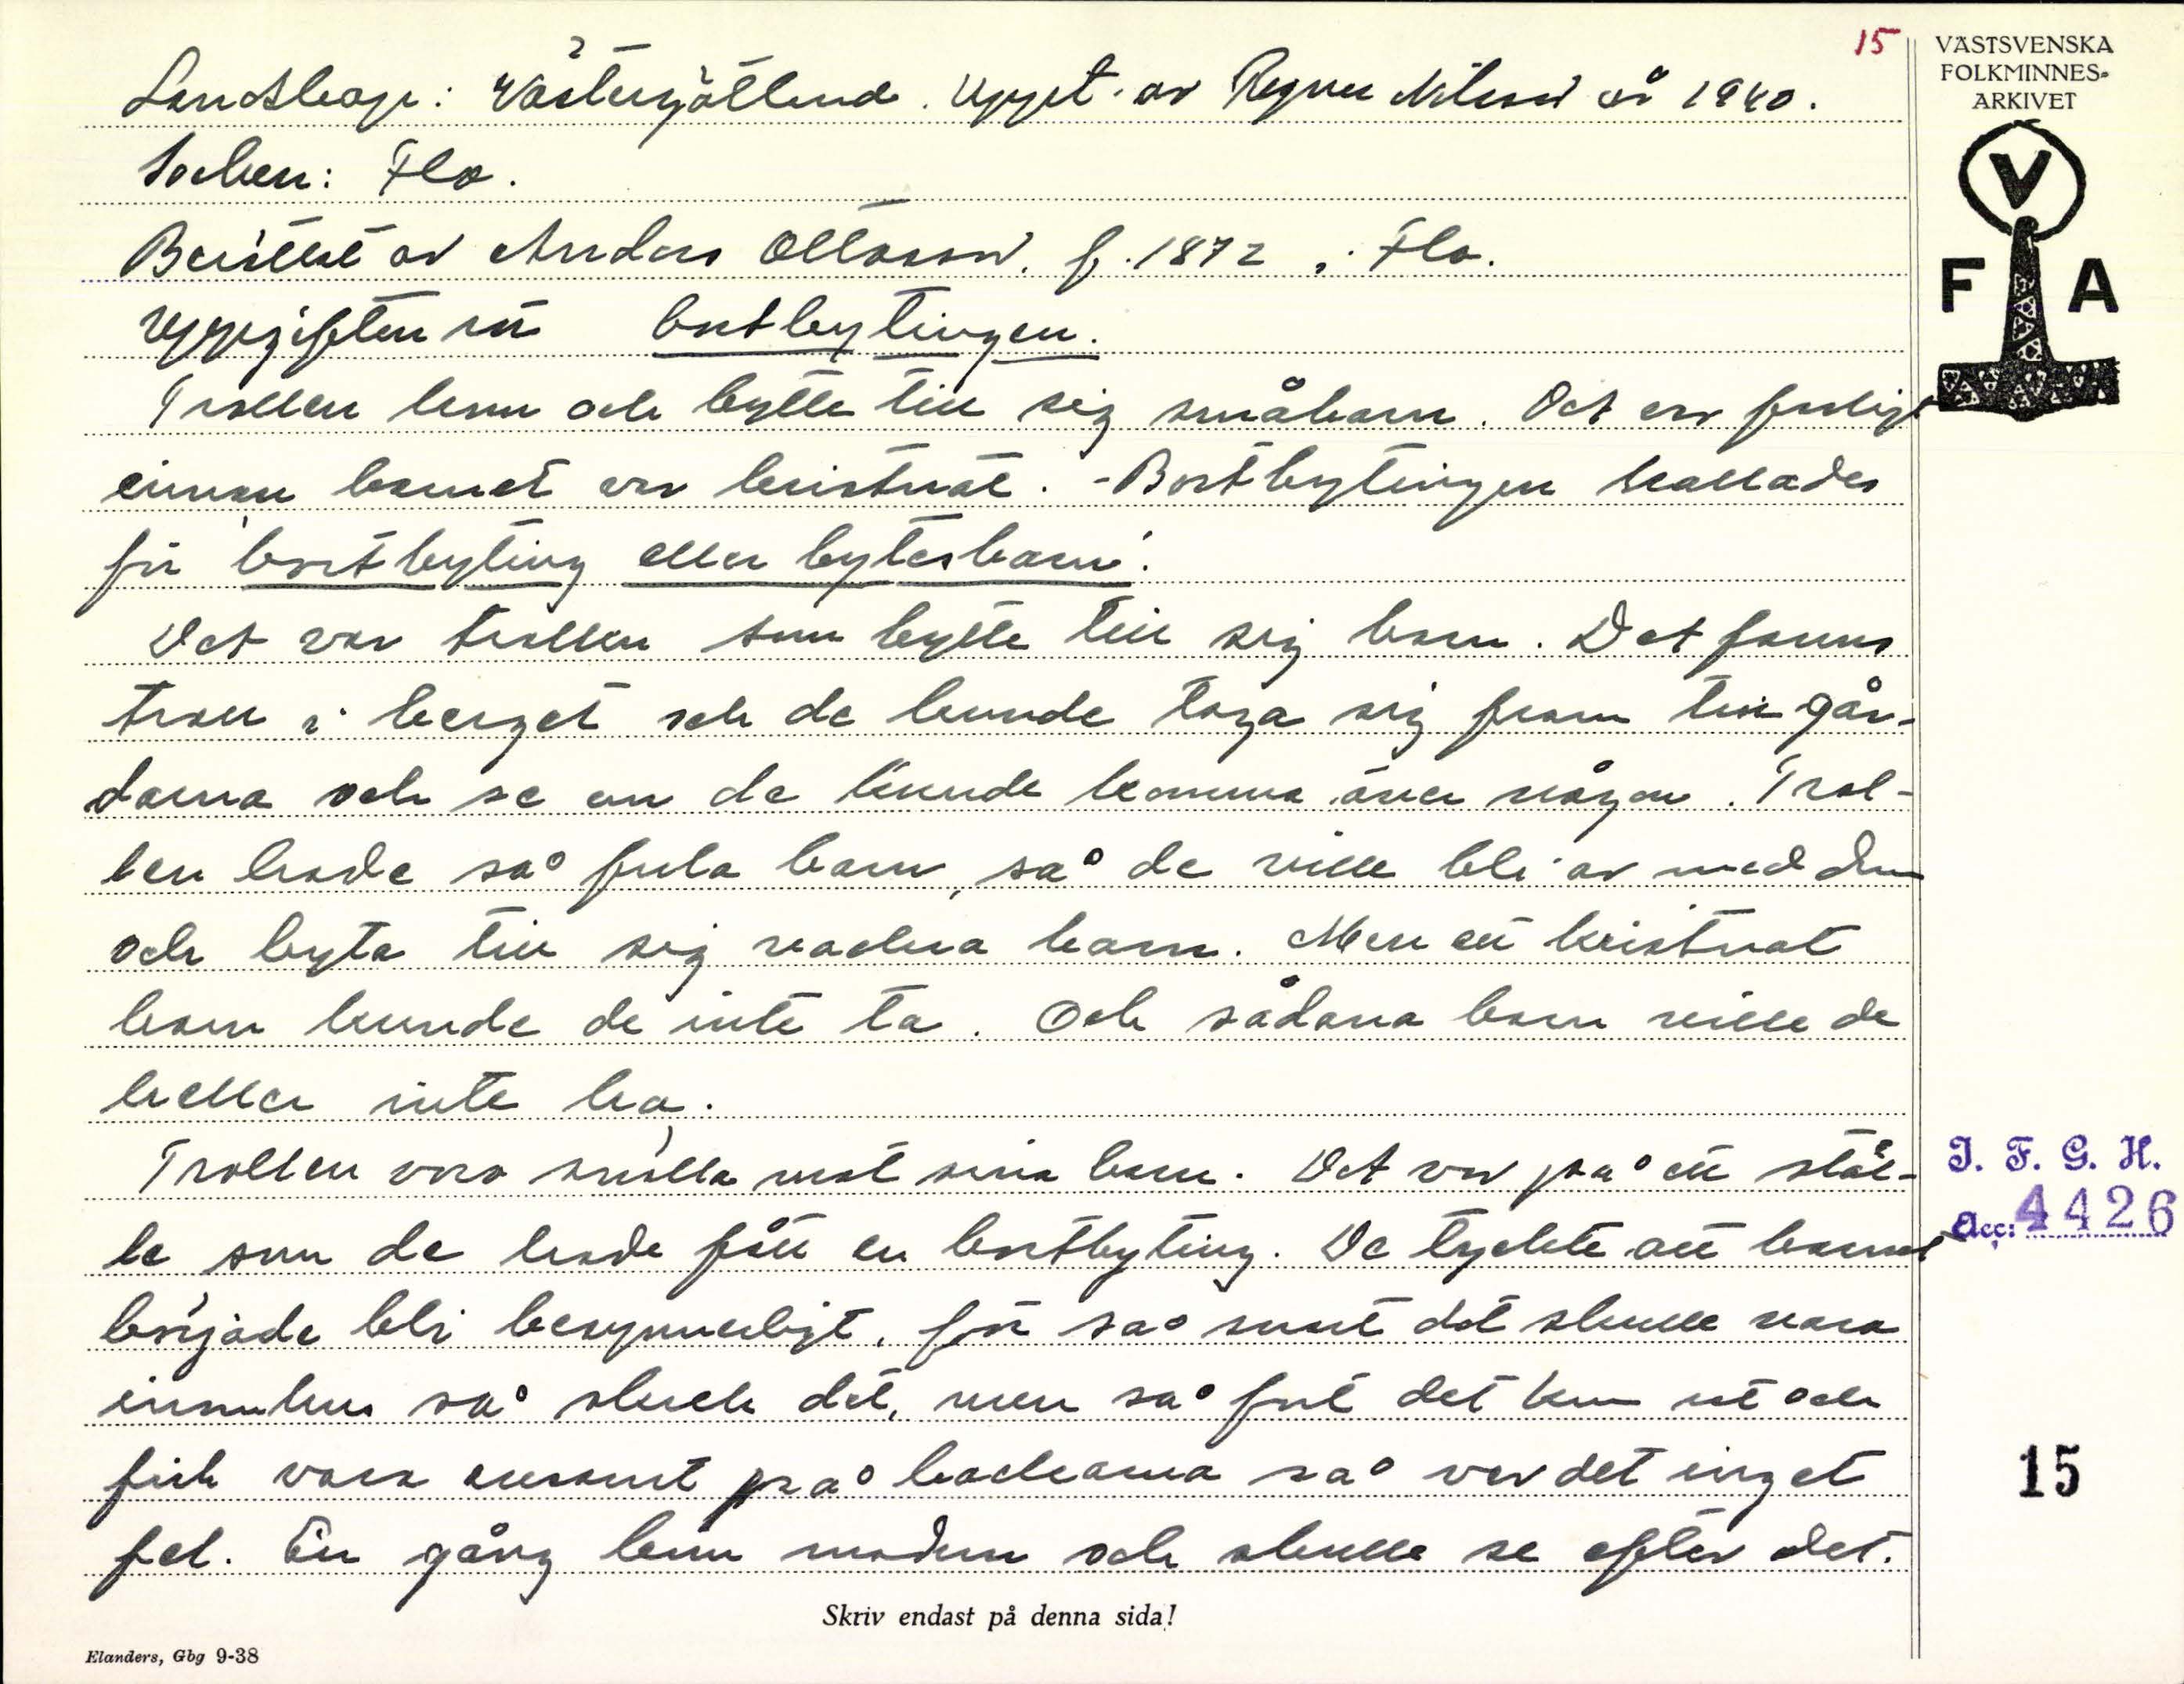 15
VÄSTSVENSKA
FOLKMINNES-
ARKIVET
V
F A
Landskap: Västergötland. Uppt. av Ragnar Nilsson år 1940.
Socken: Flo.
Berättat av Anders Ottosson. f. 1872 i Flo.
Uppgiften rör bortbytingen.
Trollen kom och bytte till sig småbarn. Det var farligt
innan barnet var kristnat. - Bortbytingen kallades
för bortbyting eller bytesbarn.
Det var trollen som bytte till sig barn. Det fanns
troll i berget och de kunde taga sig fram till går-
darna och se om de kunde komma över någon. Trol-
len hade så fula barn, så de ville bli av med dem
och byta till sig vackra barn. Men ett kristnat
barn kunde de inte ta. Och sådana barn ville de
heller inte ha.
Trollen voro snälla mot sina barn. Det var på ett stäl-
le som de hade fått en bortbyting. De tyckte att barnet
började bli besynnerligt, för så snart det skulle vara
inomhus så skrek det, men så fort det kom ut och
fick vara ensamt på backarna så var det inget
fel. En gång kom modern och skulle se efter det.
J. F. G. H.
Acc: 4426
15
Skriv endast på denna sida!
Elanders, Gbg 9-38